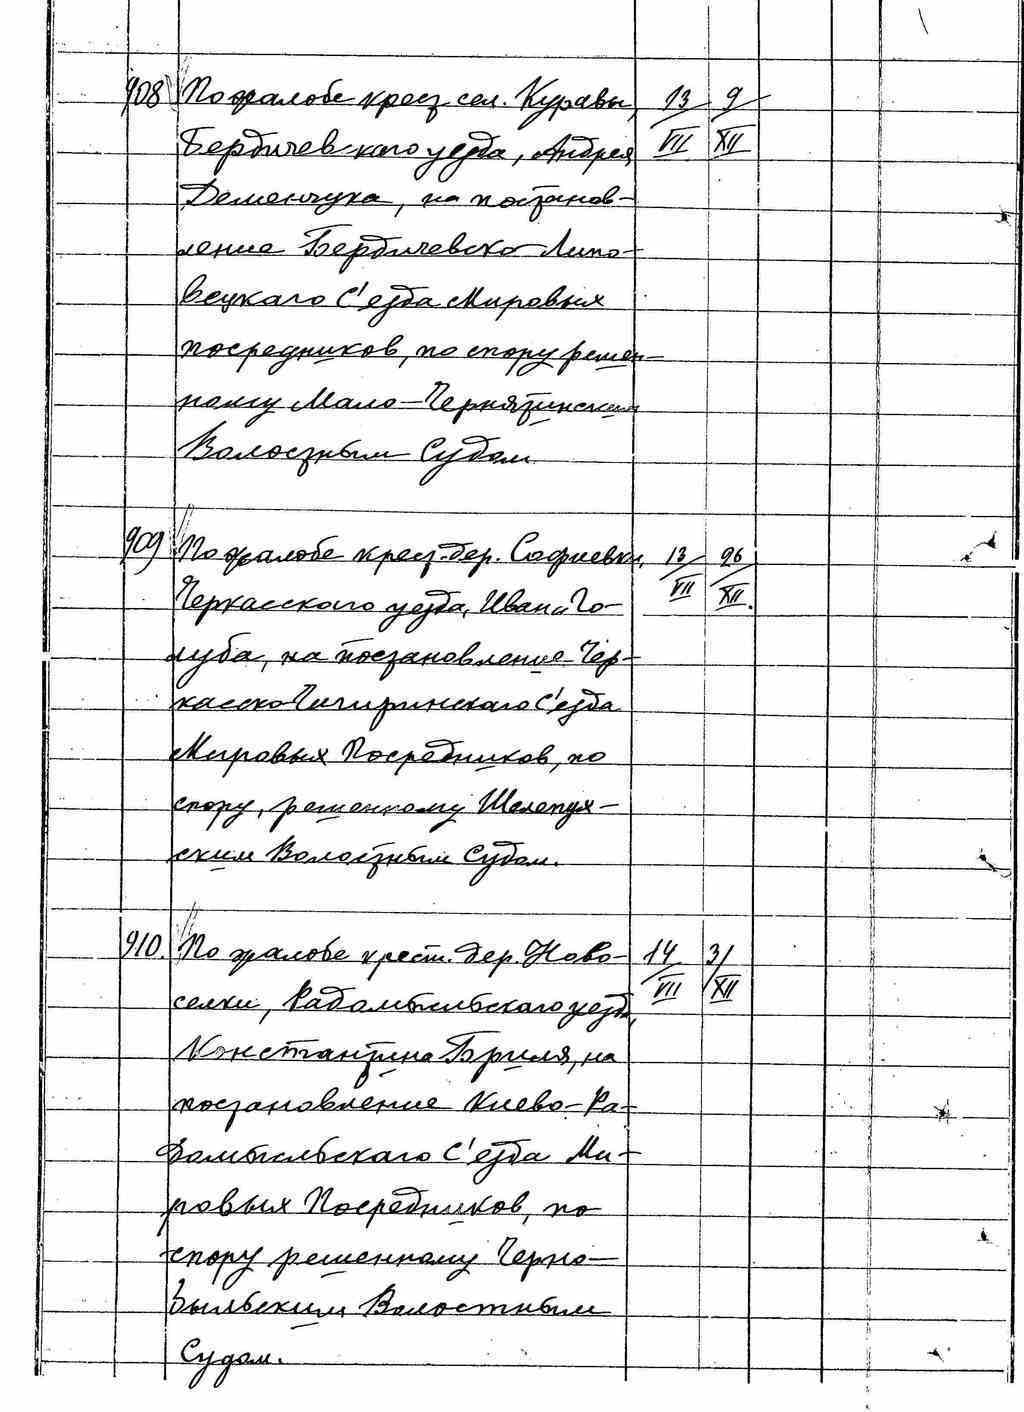 908 По жалобе крест. сел. Куравы, 13 9
Бердичевского уезда, Андрея VII XII
Деменчука, на постанов-
ление Бердичевско-Липо-
вецкаго С'езда Мировых
посредников, по спору решен-
ному Мало-Чернятинским
Волостным Судом
909 По жалобе крест. дер. Софиевки, 13 26
Черкасского уезда, Ивана Го- VII XII.
луба, на постановление Чер-
касско-Чигиринскаго С'езда
Мировых Посредников, по
спору, решенному Шелепух-
ским Волостным Судом.
910. По жалобе крест. дер. Ново- 14 31
селки, Радомысльскаго уезда, VII XII
Константина Бриля, на
постановление Киево-Ра-
домысльскаго С'езда Ми-
ровых Посредников, по
спору решенному Черно-
быльским Волостным
Судом.